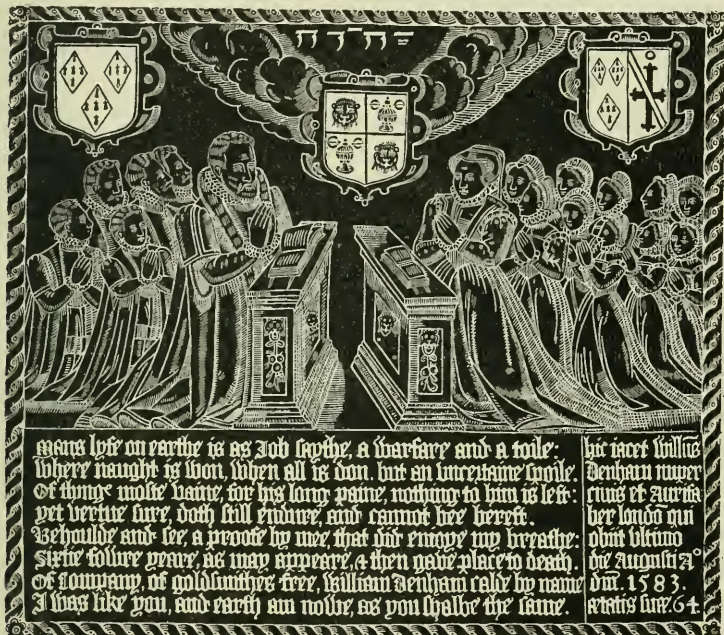 mans lyfe on earthe is as Job saythe, a warfare and a toile:
Where naught is won, when all is don. but an vncertaine spoile.
Of thinge moste vaine, for his long paine, nothing to him is left:
yet vertue sure, doth still endure, and cannot bee bereft.
Behoulde and see, a proofe by mee, that did enioye my breathe:
Sixtie fowre yeare, as may appeare, & then gave place to death.
Of Company, of goldsmithes free, William Denham calde by name
I was like you, and earth am nowe, as you shalbe the same.
hic iacet Willm̄s
Denham nuper
ciuis et aurifa
ber londō qui
obiit vltimo
die Augusti A°
dm̄. 1583.
ætatis suæ. 64.